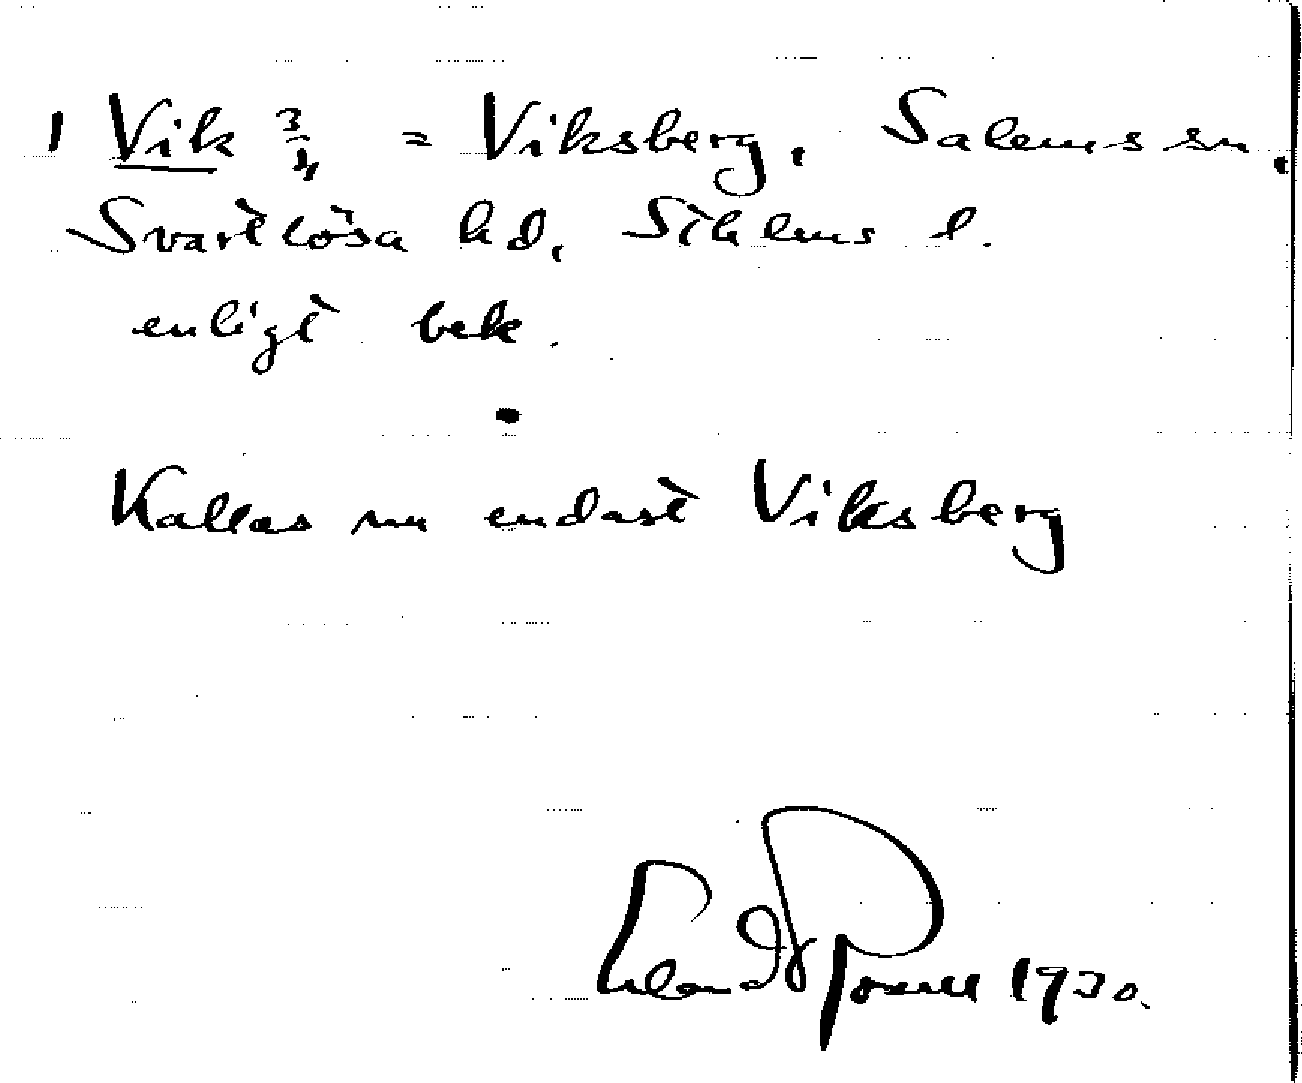 1 Vik 3/4 = Viksberg, Salems sn,
Svartlösa hd, Sthlms l.
enligt bek.
Kallas nu endast Viksberg
Erland Rosell 1930.